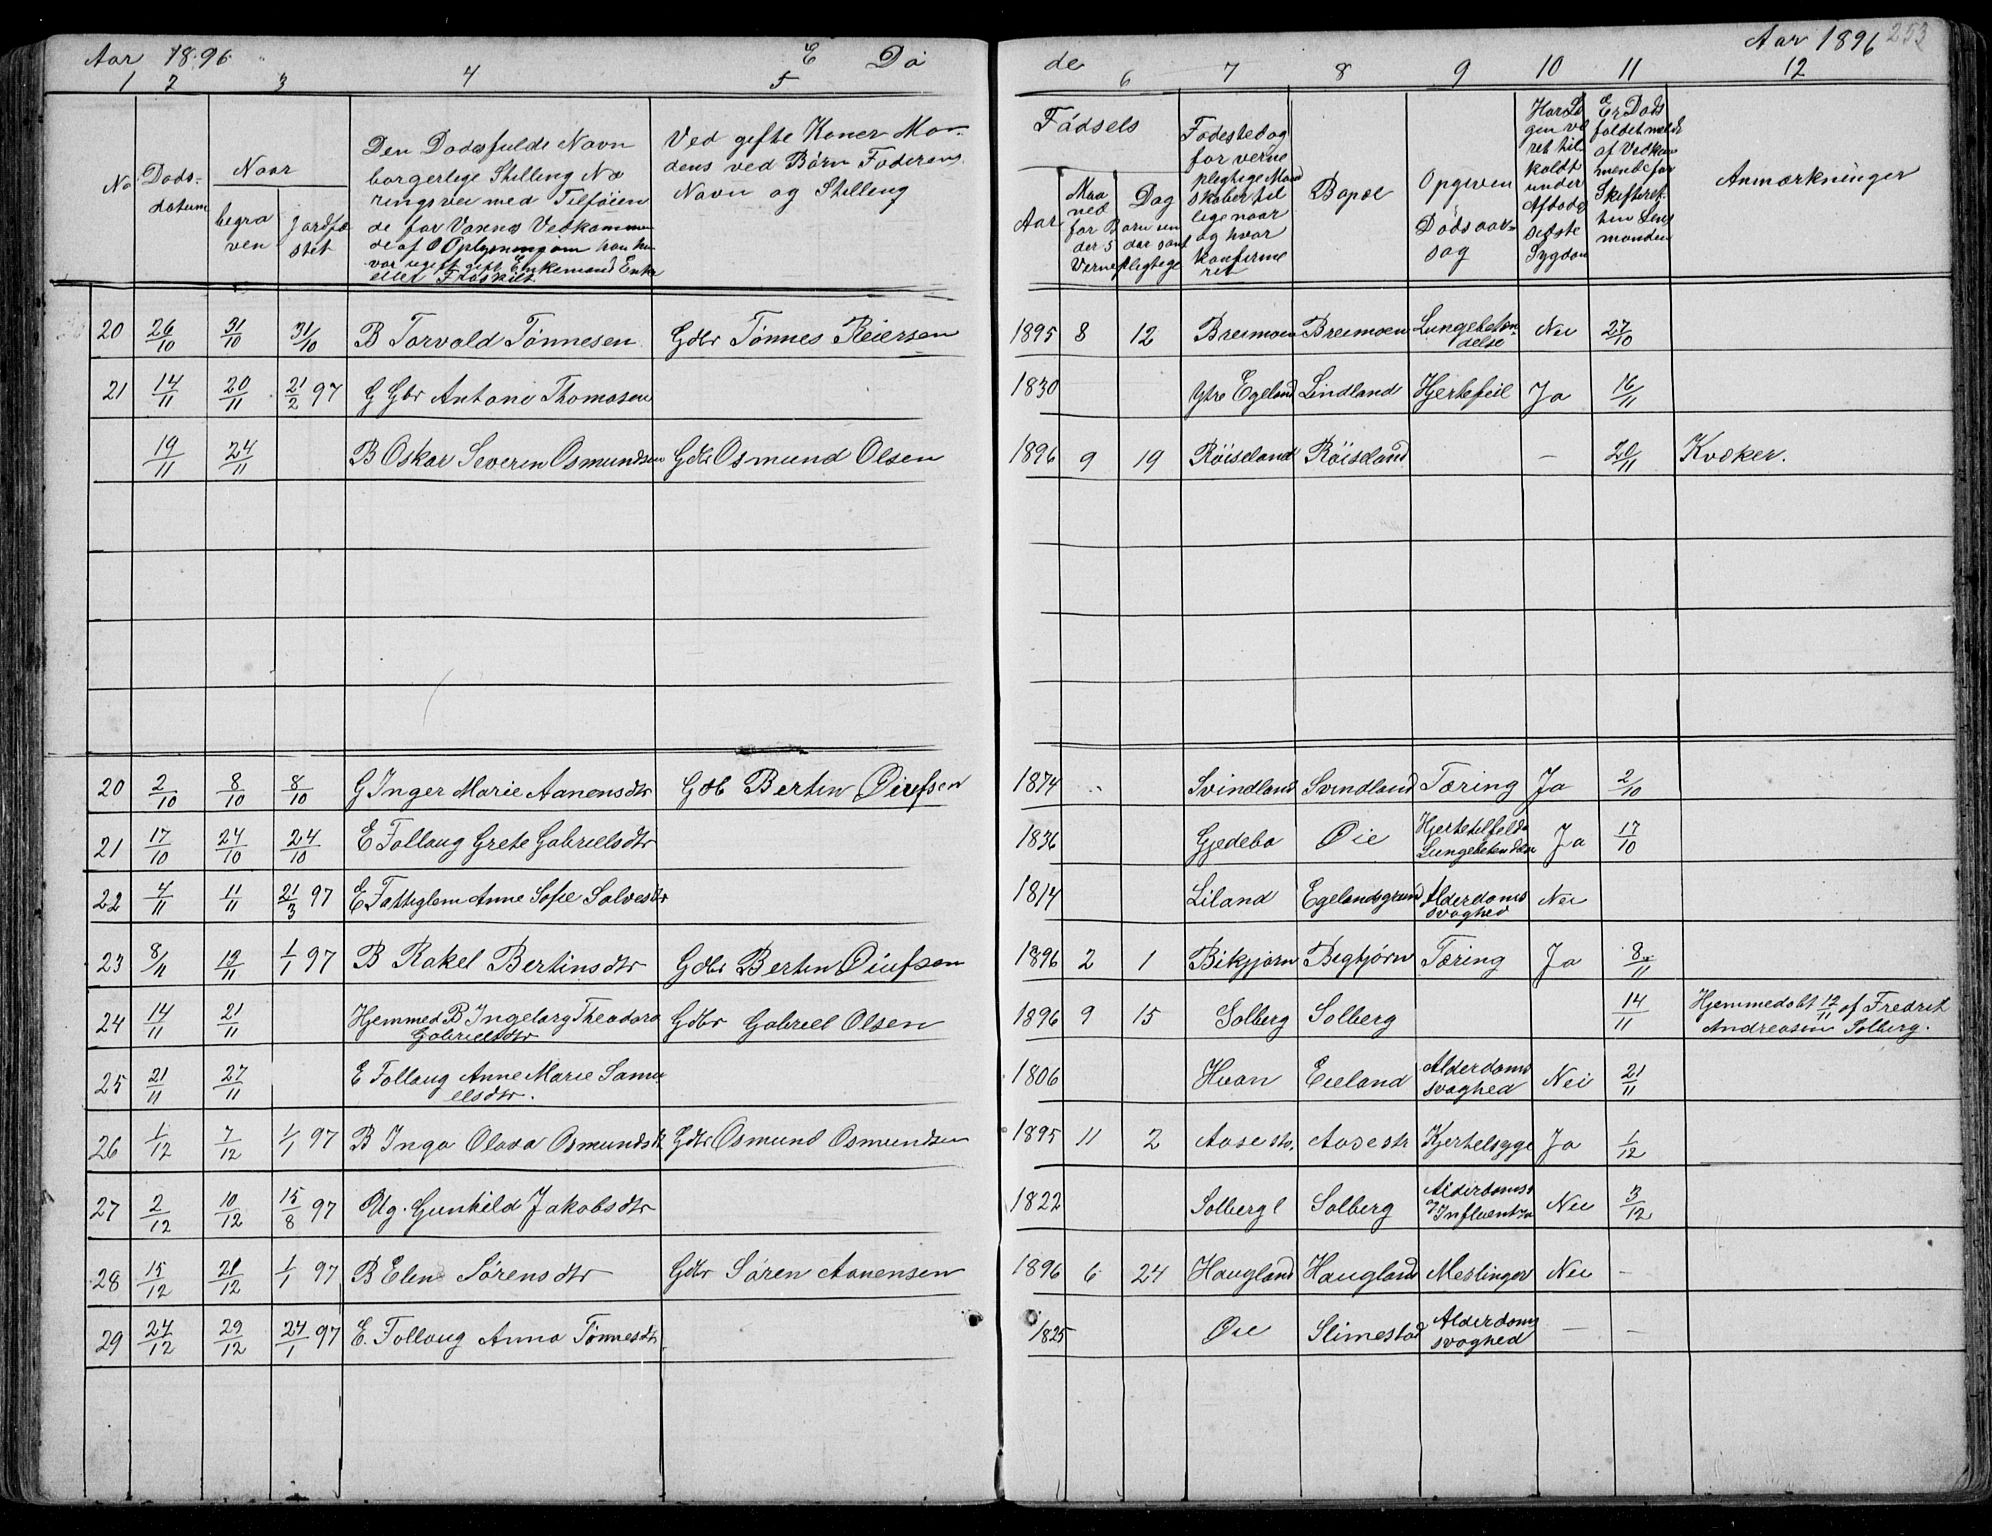 Aar 1896. E Dö
de Aar 1896 253
1 2 3 4 5
6 7 8 9 10 11 12
No Döds-datum Naar begraven Jordfæstet Den Dödsfaldt Navn borgerlige Stilling Næringsvei med Tilföiende for Voxnes Vedkommende af Oplysning om han hun var ugift gift Enkemand Enke eller Fraskilt. Ved gifte Koner Mandens ved Børn Faderens Navn og Stilling
Födsels Aar Maaned Dag for Børn under 5 Aar samt Vernepligtige Födested og for vernepligtige Mandskaber tillige naar og hvor konfirmeret Bopæl Opgiven Dödsaarsag Har Lægen været tilkaldt under Afdödes sidste Sygdom Er Dödsfaldet meldt af Vedkommende for Skifteretten Lensmanden Anmærkninger
20 26/10 31/10 31/10 B Torvald Tønnesen Gdbr Tønnes Reiersen 1895 8 12 Breimoen Breimoen Lungebetændelse Nei 27/10
21 14/11 20/11 21/2 97 G Gbr Antoni Thomasen 1830 Ytre Egeland Lindland Hjertefeil Ja 16/11
19/11 24/11 B Oskar Severin Osmundsen Gdbr Osmund Olsen 1896 9 19 Röiseland Röiseland – 20/11 Kvæker.
20 2/10 8/10 8/10 G Inger Marie Aanensdtr Gdb Bertin Öiufsen 1874 Svindland Svindland Tæring Ja 2/10
21 17/10 24/10 24/10 E Follaug Grete Gabrielsdtr 1836 Gjedebo Øie Hjertetilfelde Lungebetendelse Ja 17/10
22 4/11 11/11 21/3 97 E Fattiglem Anne Sofie Salvesdtr 1814 Liland Egelandsgrund Alderdoms svaghed Nei
23 8/11 13/11 1/1 97 B Rakel Bertinsdtr Gdbr Bertin Öiufsen 1896 2 1 Bikjørn Begbjørn Tæring Ja 8/11
24 14/11 21/11 Hjemmed B Ingeborg Theodora Gabrielsdtr Gdbr Gabriel Olsen 1896 9 15 Solberg Solberg 14/11 Hjemmedøbt 12/11 af Fredrik Andreasen Solberg.
25 21/11 27/11 E Follaug Anne Marie Samuelsdtr. 1806 Hvan Eieland Alderdoms svaghed Nei 21/11
26 1/12 7/12 1/1 97 B Inga Olava Osmundsdt Gdbr Osmund Osmundsen 1895 11 2 Aasestr. Aasestr Kjertelsyge Ja 1/12
27 2/12 10/12 15/8 97 Ug. Gunhild Jakobsdtr 1822 Solbergl Solberg Alderdomss og Influentza Nei 3/12
28 15/12 21/12 1/1 97 B Elen Sørensdtr Gdbr Søren Aanensen 1896 6 24 Haugland Haugland Meslinger Nei –
29 24/12 29/12 24/1 97 E. Follaug Anna Tønnesdtr. 1825 Øie Slimestad Alderdoms svaghed – –